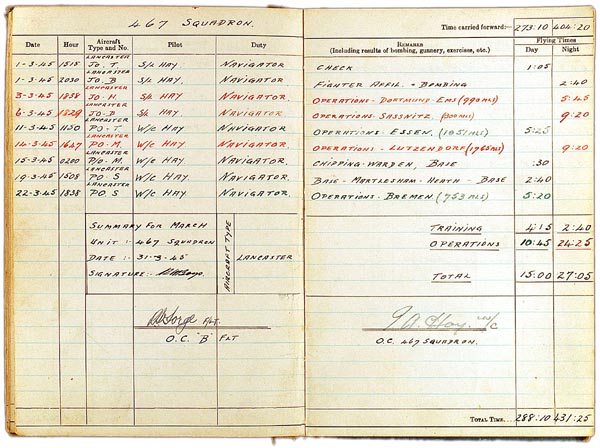 467 SQUADRON.
Time carried forward:- 273:10 404:20
Date Hour Aircraft Type and No. Pilot Duty REMARKS (Including results of bombing, gunnery, exercises, etc.) Flying Times Day Night
LANCASTER
1-3-45 1515 JO. T. S/L HAY NAVIGATOR CHECK 1:05
LANCASTER
1-3-45 2030 JO. B S/L HAY NAVIGATOR. FIGHTER AFFIL. + BOMBING 2:40
LANCASTER
3-3-45 1838 JO. H. S/L HAY. NAVIGATOR. OPERATIONS - DORTMUND-EMS (990 MLS) 5:45
LANCASTER
6-3-45 1829 JO-D S/L HAY. NAVIGATOR. OPERATIONS- SASSNITZ. 9:20
LANCASTER
11-3-45 1130 PO - T W/C HAY NAVIGATOR. OPERATIONS - ESSEN. (1051 MLS) 5:25
LANCASTER
14-3-45 1647 PO-M. W/C HAY. NAVIGATOR. OPERATIONS - LUTZENDORF (1765 MLS) 9:20
LANCASTER
15-3-45 0200 P/O-M. W/C HAY NAVIGATOR. CHIPPING-WARDEN, BASE :30
LANCASTER
19-3-45 1508 PO. S W/C HAY. NAVIGATOR. BASE - MARTLESHAM-HEATH - BASE 2:40
LANCASTER
22-3-45 1838 PO. S W/C HAY. NAVIGATOR. OPERATIONS - BREMEN (753 MLS) 5:20
SUMMARY FOR MARCH TRAINING 4:15 2:40
UNIT :- 467 SQUADRON OPERATIONS 10:45 24:25
DATE :- 31-3-45 AIRCRAFT TYPE LANCASTER
SIGNATURE:- TOTAL 15:00 27:05
F/LT. W/C
O.C. "B" FLT O.C. 467 SQUADRON.
TOTAL TIME... 288:10 431:25